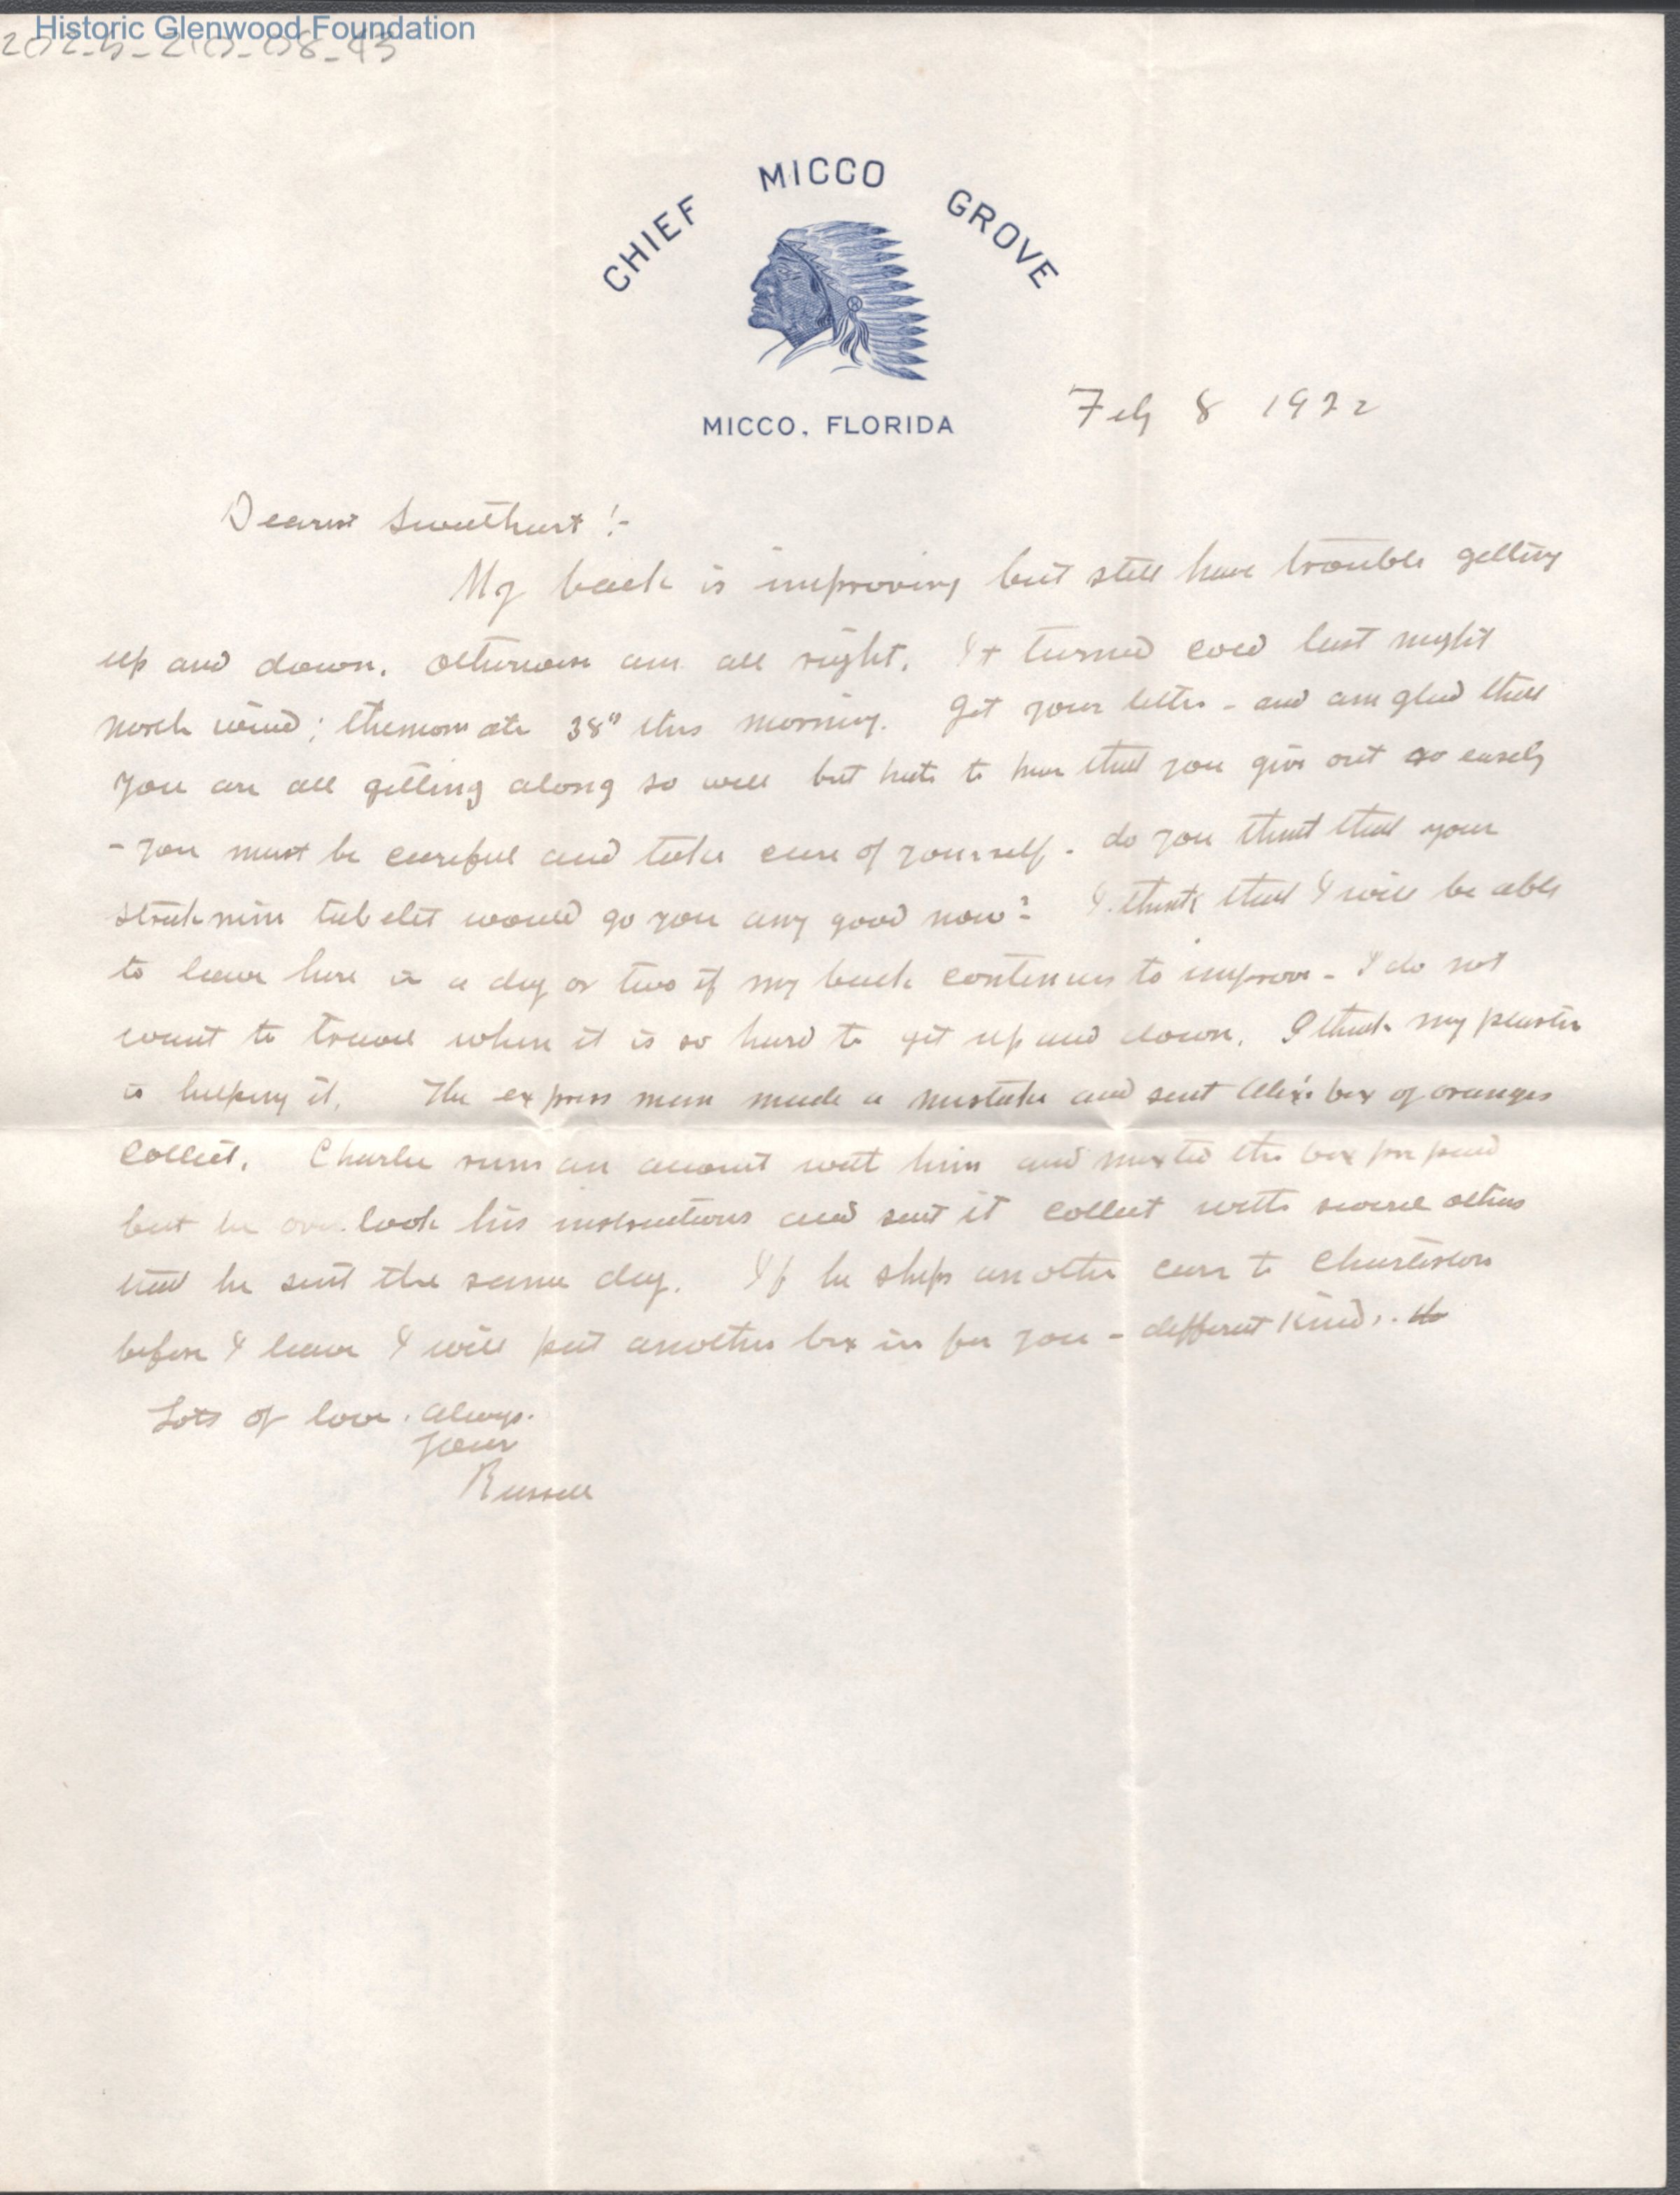 Historic Glenwood Foundation
CHIEF MICCO GROVE
MICCO, FLORIDA
Feb 8 1922
Dearest Sweetheart!-
My back is improving but still have trouble getting
up and down. Otherwise am all right. It turned cold last night
north wind; themomate 38° this morning. Got your letter - and am glad that
you are all getting along so well but hate to hear that you give out so easely
- you must be careful and take care of yourself. do you think that your
strickmine tabelet would go you any good now? I think that I will be able
to leave here in a day or two if my back continues to improve - I do not
want to travel when it is so hard to get up and down. I think my plaster
is helping it. The express man made a mistake and sent Alex's box of oranges
collect. Charlie runs an account with him and marked the box prepaid
but he over look his instructions and sent it collect with several others
that he sent the same day. If he ships another car to Charleston
before I leave I will put another box in for you - different kind.
Lots of love. Always.
your
Russell